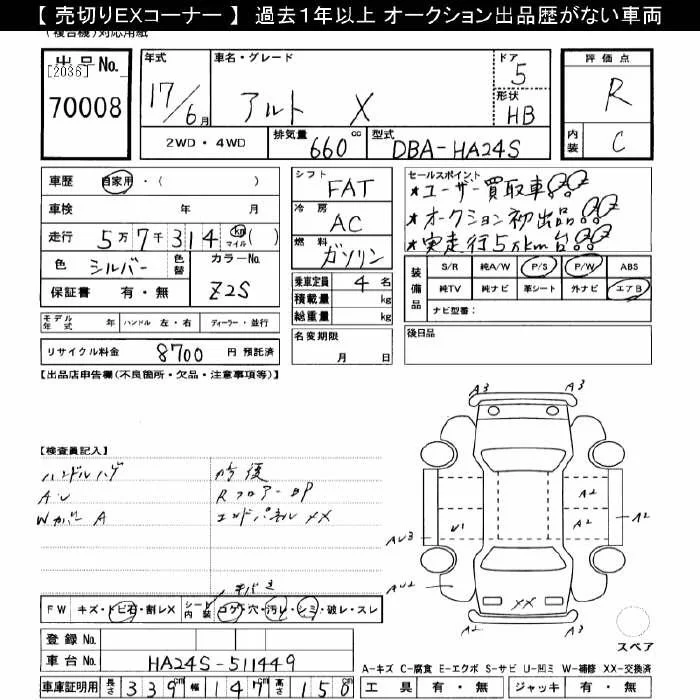 【 売切りEXコーナー 】 過去1年以上 オークション出品歴がない車両
(複合機)対応用紙
出品No.
[2036]
70008
年式
17/6月
車名・グレード
アルト X
ドア
5
形状
HB
2WD・4WD
排気量
660 cc
型式
DBA-HA24S
評価点
R
内装
C
車歴 自家用・( )
車検 年 月
走行 5万7千314 km マイル ( )
色 シルバー 色替 カラーNo.
Z2S
保証書 有・無
シフト
FAT
冷房
AC
燃料
ガソリン
乗車定員 4名
積載量 kg
総重量 kg
セールスポイント
★ユーザー買取車
★オークション初出品
★実走行5万km台
装備品
S/R 純A/W P/S P/W ABS
純TV 純ナビ 革シート 外ナビ エアB
ナビ型番:
モデル年式 年 ハンドル 左・右 ディーラー・並行
リサイクル料金 8700 円 預託済
名変期限
月 日
後日品
【出品店申告欄(不良箇所・欠品・注意事項等)】
【検査員記入】
ハンドルハゲ
AU
Wカバー A
修復
Rフロアー BP
エンドパネル XX
A3 A3
A2
A2
A2
AU3
U1
AU2
XX
FW キズ・トビ石・割レX
シート内装 コゲ・穴・汚レ・シミ・破レ・スレ
登録No.
車台No. HA24S-511449
車庫証明用 長さ 339cm 幅 147cm 高さ 150cm
スペア
A-キズ C-腐食 E-エクボ S-サビ U-凹ミ W-補修 XX-交換済
工具 有・無 ジャッキ 有・無